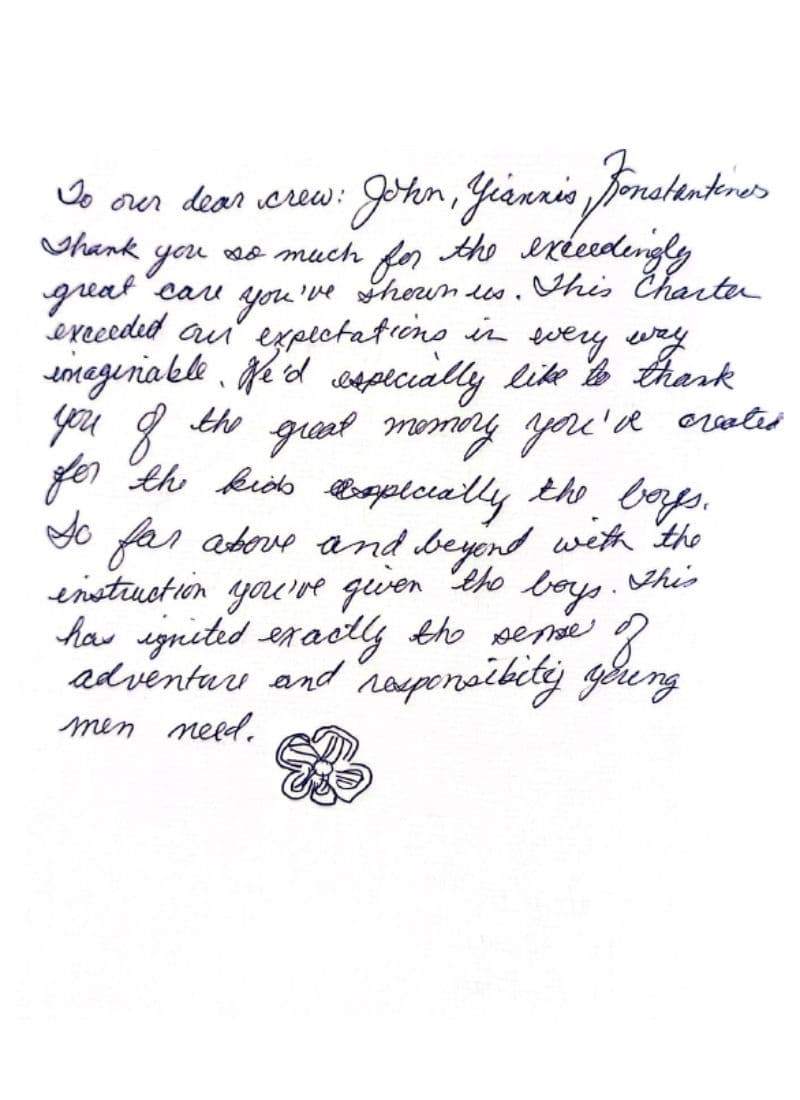 To our dear crew: John, Yiannis, Konstantinos
Thank you so much for the exceedingly
great care you've shown us. This Charter
exceeded our expectations in every way
imaginable. We'd especially like to thank
you of the great memory you've created
for the kids especially the boys.
So far above and beyond with the
instruction you've given the boys. This
has ignited exactly the sense of
adventure and responsibility young
men need.